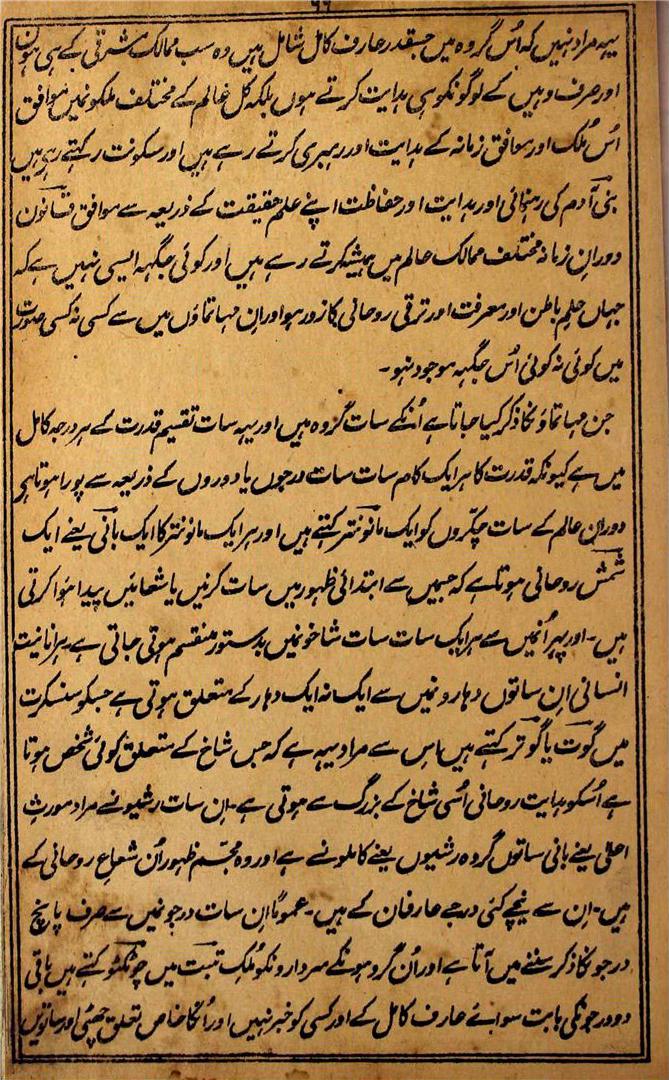 ٦٦
یہہ مراد نہیں کہ اُس گروہ میں جسقدر عارف کامل شامل ہیں وہ سب ممالک مشرقی کے ہی ہوں
اور صرف وہیں کے لوگونکو ہی ہدایت کرتے ہوں بلکہ کل عالم کے مختلف ملکونمیں موافق
اُس مُلک اور موافق زمانہ کے ہدایت اور رہبری کرتے رہے ہیں اور سکونت رکہتے رہے ہیں
بنی آدم کی رہنمائی اور ہدایت اور حفاظت اپنے علم حقیقت کے ذریعہ سے موافق قانون
دوران زمانہ مختلف ممالک عالم میں ہمیشہ کرتے رہے ہیں اور کوئی جگہہ ایسی نہیں ہے کہ
جہاں علم باطن اور معرفت اور ترقی روحانی کا زور ہو اور ان مہاتماؤں میں سے کسی نہ کسی صورت
میں کوئی نہ کوئی اُس جگہہ موجود نہو۔
جن مہاتماؤنکا ذکر کیا جاتا ہے اُنکے سات گروہ ہیں اور یہہ سات تقسیم قدرت کے ہر درجہ کامل
میں ہے کیونکہ قدرت کا ہر ایک کام سات سات درجوں یا دوروں کے ذریعہ سے پورا ہوتا ہے
دوران عالم کے سات چکّروں کو ایک مانونتر کہتے ہیں اور ہر ایک مانونتر کا ایک بانی یعنے ایک
شمس روحانی ہوتا ہے کہ جسمیں سے ابتدائی ظہور میں سات کرنیں یا شعائیں پیدا ہوا کرتی
ہیں۔ اور پہر اُنمیں سے ہر ایک سات سات شاخونمیں بدستور منقسم ہوتی جاتی ہے ہر انانیت
انسانی ان ساتوں دہارونمیں سے ایک نہ ایک دہار کے متعلق ہوتی ہے جسکو سنسکرت
میں گوت یا گوتر کہتے ہیں اس سے مراد یہہ ہے کہ جس شاخ کے متعلق کوئی شخص ہوتا
ہے اُسکو ہدایت روحانی اُسی شاخ کے بزرگ سے ہوتی ہے۔ اِن سات رشیونسے مراد مورث
اعلٰی یعنے بانی ساتوں گروہ رشیوں یعنے کاملونسے ہے اور وہ مجسّم ظہور اُن شعاع روحانی کے
ہیں۔ اِن سے نیچے کئی درجے عارفان کے ہیں۔ عموماً ان سات درجونمیں سے صرف پانچ
درجونکا ذکر سننے میں آتا ہے اور اُن گروہونکے سردارونکو مُلک تبت میں کہتے ہیں باقی
دو درجونکی بابت سوائے عارف کامل کے اور کسی کو خبر نہیں اور اُنکا خاص تعلق چہٹی اور ساتویں